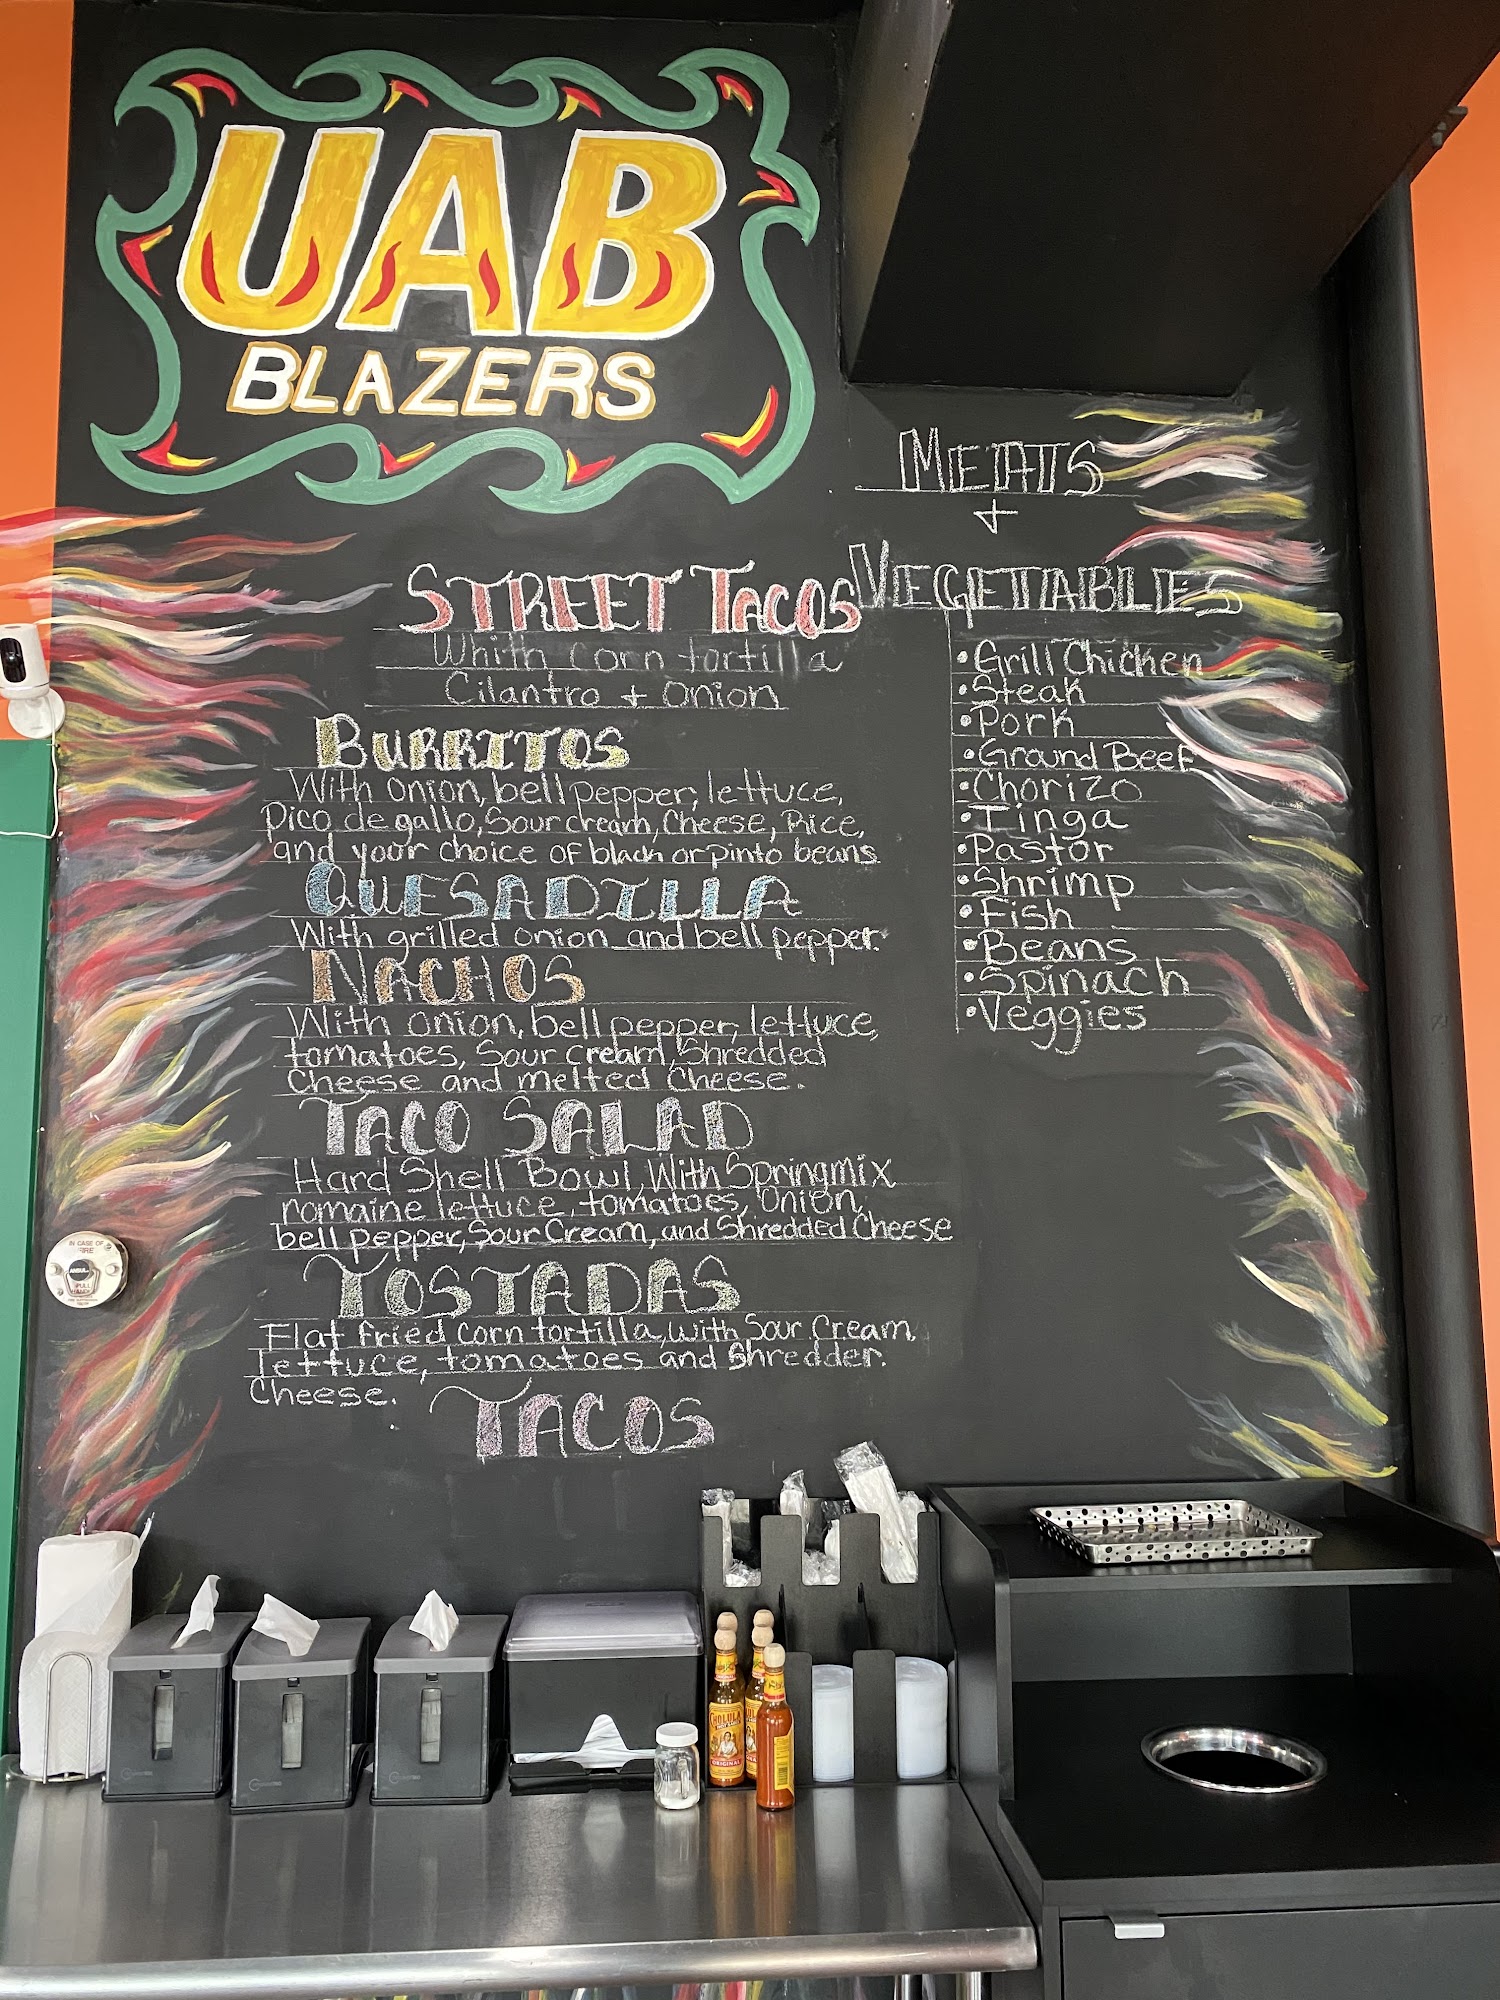 UAB
BLAZERS
STREET TACOS
Whith corn tortilla
Cilantro + onion
BURRITOS
With onion, bell pepper, lettuce,
Pico de gallo, Sour cream, Cheese, Rice,
and your choice of black or pinto beans
QUESADILLA
With grilled onion and bell pepper.
NACHOS
With onion, bell pepper, lettuce,
tomatoes, Sour cream, Shredded
Cheese and melted Cheese.
TACO SALAD
Hard Shell Bowl, With Springmix
romaine lettuce, tomatoes, Onion,
bell pepper, Sour Cream, and Shredded Cheese
TOSTADAS
Flat fried corn tortilla, with Sour Cream,
lettuce, tomatoes and Shredder.
Cheese.
TACOS
MEATS
+
VEGETABLES
•Grill Chicken
•Steak
•Pork
•Ground Beef
•Chorizo
•Tinga
•Pastor
•Shrimp
•Fish
•Beans
•Spinach
•Veggies
IN CASE OF
FIRE
PULL
CHOLULA
ORIGINAL